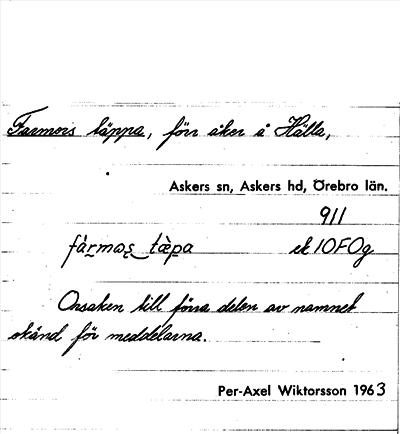 Farmors täppa, förr åker å Hälla,
Askers sn, Askers hd, Örebro län.
911
fàrmos tæ̀pa ek 10F0g
Orsaken till förra delen av namnet
okänd för meddelarna.
Per-Axel Wiktorsson 1963